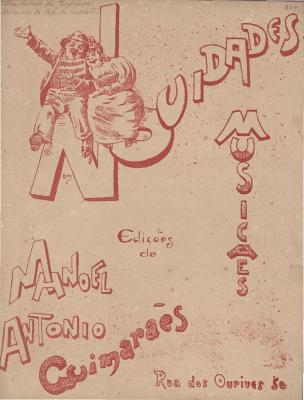 NOVIDADES
MUSICAES
Edições
de
MANOEL
ANTONIO
GUIMARAẼS
Rua dos Ourives 50